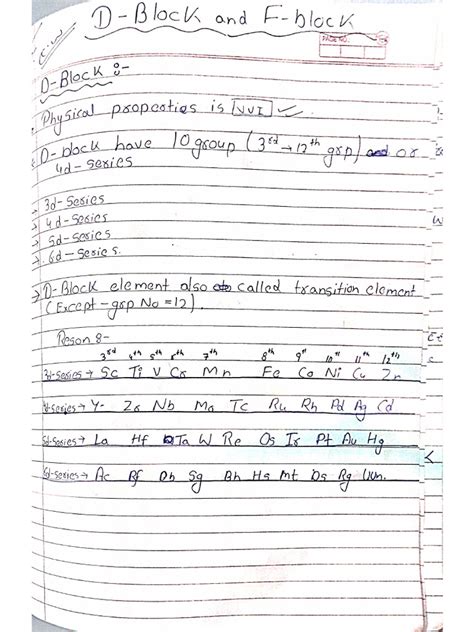 D-Block and F-block
PAGE NO.
D-Block :-
Physical propeoties is [VVI]
D-block have 10 group (3rd → 12th grp) and or
4d-series
→ 3d-Series
→ 4d-Series
→ 5d-Series
→ 6d-Series.
→ D-Block element also called transition element
(Except - grp No = 12).
Reson 8-
3rd 4th 5th 6th 7th 8th 9th 10th 11th 12th
3d-series → Sc Ti V Cr Mn Fe Co Ni Cu Zn
4d-series → Y- Zr Nb Mo Tc Ru Rh Pd Ag Cd
5d-Series → La Hf Ta W Re Os Ir Pt Au Hg
6d-series → Ac Rf Db Sg Bh Hs Mt Ds Rg Uun.